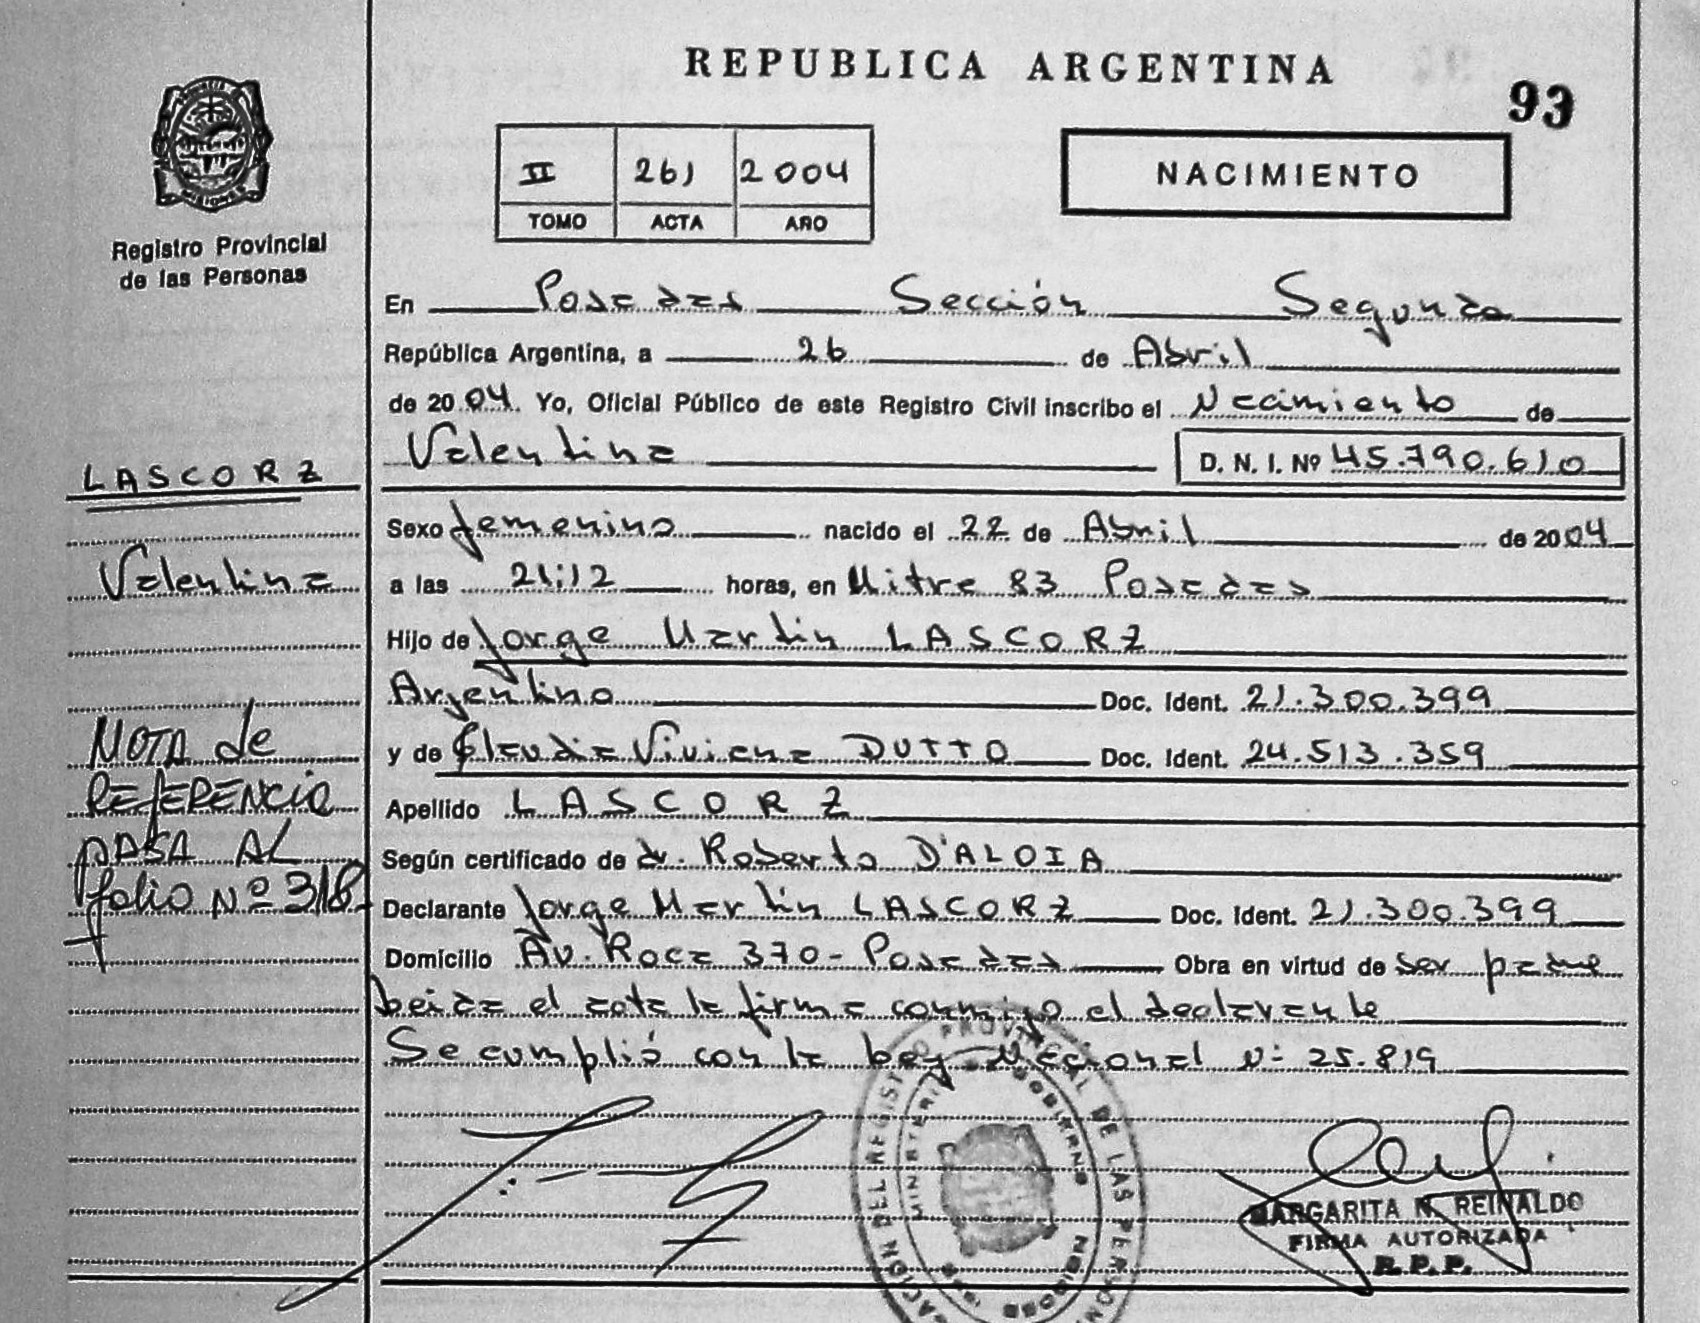 REPUBLICA ARGENTINA
93
II 261 2004
TOMO ACTA AÑO
NACIMIENTO
Registro Provincial
de las Personas
En Posadas Sección Segunda
República Argentina, a 26 de Abril
de 2004. Yo, Oficial Público de este Registro Civil inscribo el Nacimiento de
Valentina D. N. I. Nº 45.790.610
LASCORZ
Valentina
NOTA de
REFERENCIA
PASA AL
folio Nº 318
Sexo femenino nacido el 22 de Abril de 2004
a las 21:12 horas, en Mitre 83 Posadas
Hijo de Jorge Martin LASCORZ
Argentino Doc. Ident. 21.300.399
y de Claudia Viviana DUTTO Doc. Ident. 24.513.359
Apellido LASCORZ
Según certificado de dr. Roberto D'ALOIA
Declarante Jorge Martin LASCORZ Doc. Ident. 21.300.399
Domicilio Av. Roca 370 - Posadas Obra en virtud de ser padre
Leida el acta la firma conmigo el declarante
Se cumplió con la Ley Nacional Nº 25.819
MARGARITA N. REINALDO
FIRMA AUTORIZADA
R.P.P.
DEL REGISTRO PROVINCIAL DE LAS PERSON
MINISTERIO GOBIERNO
MISIONES